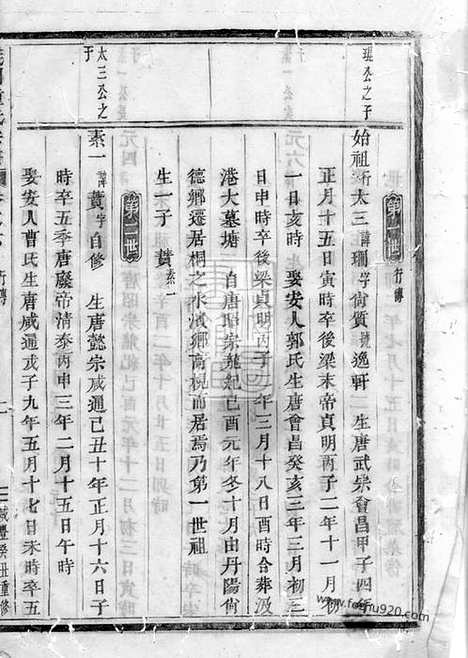 第一世 行傳
琨公之子
始祖行太三諱珊字尙質號逸軒 生唐武宗會昌甲子四年
正月十五日寅時卒後梁末帝貞明二年十一月初
一日亥時 娶安人郭氏生唐會昌癸亥三年三月初三
日申時卒後梁貞明丙子二年三月十八日酉時合葬汲
港大墓塘 自唐昭宗龍紀己酉元年冬十月由丹陽尙
德鄉遷居桐之水濱鄉高梘而居焉乃第一世祖
生一子 賛素一
第二世
太三公之子
素一諱賛字自修 生唐懿宗咸通己丑十年正月十六日子
時卒五季唐廢帝清泰丙申三年二月十五日午時
娶安人曹氏生唐咸通戊子九年五月十七日未時卒五
行傳
咸豐癸丑重修
www.fojiapu920.com